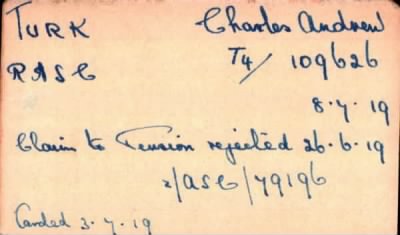 TURK Charles Andrew
RASC T4/ 109626
8.7.19
Claim to Pension rejected 26.6.19
2/ASC/79196
Carded 3.7.19